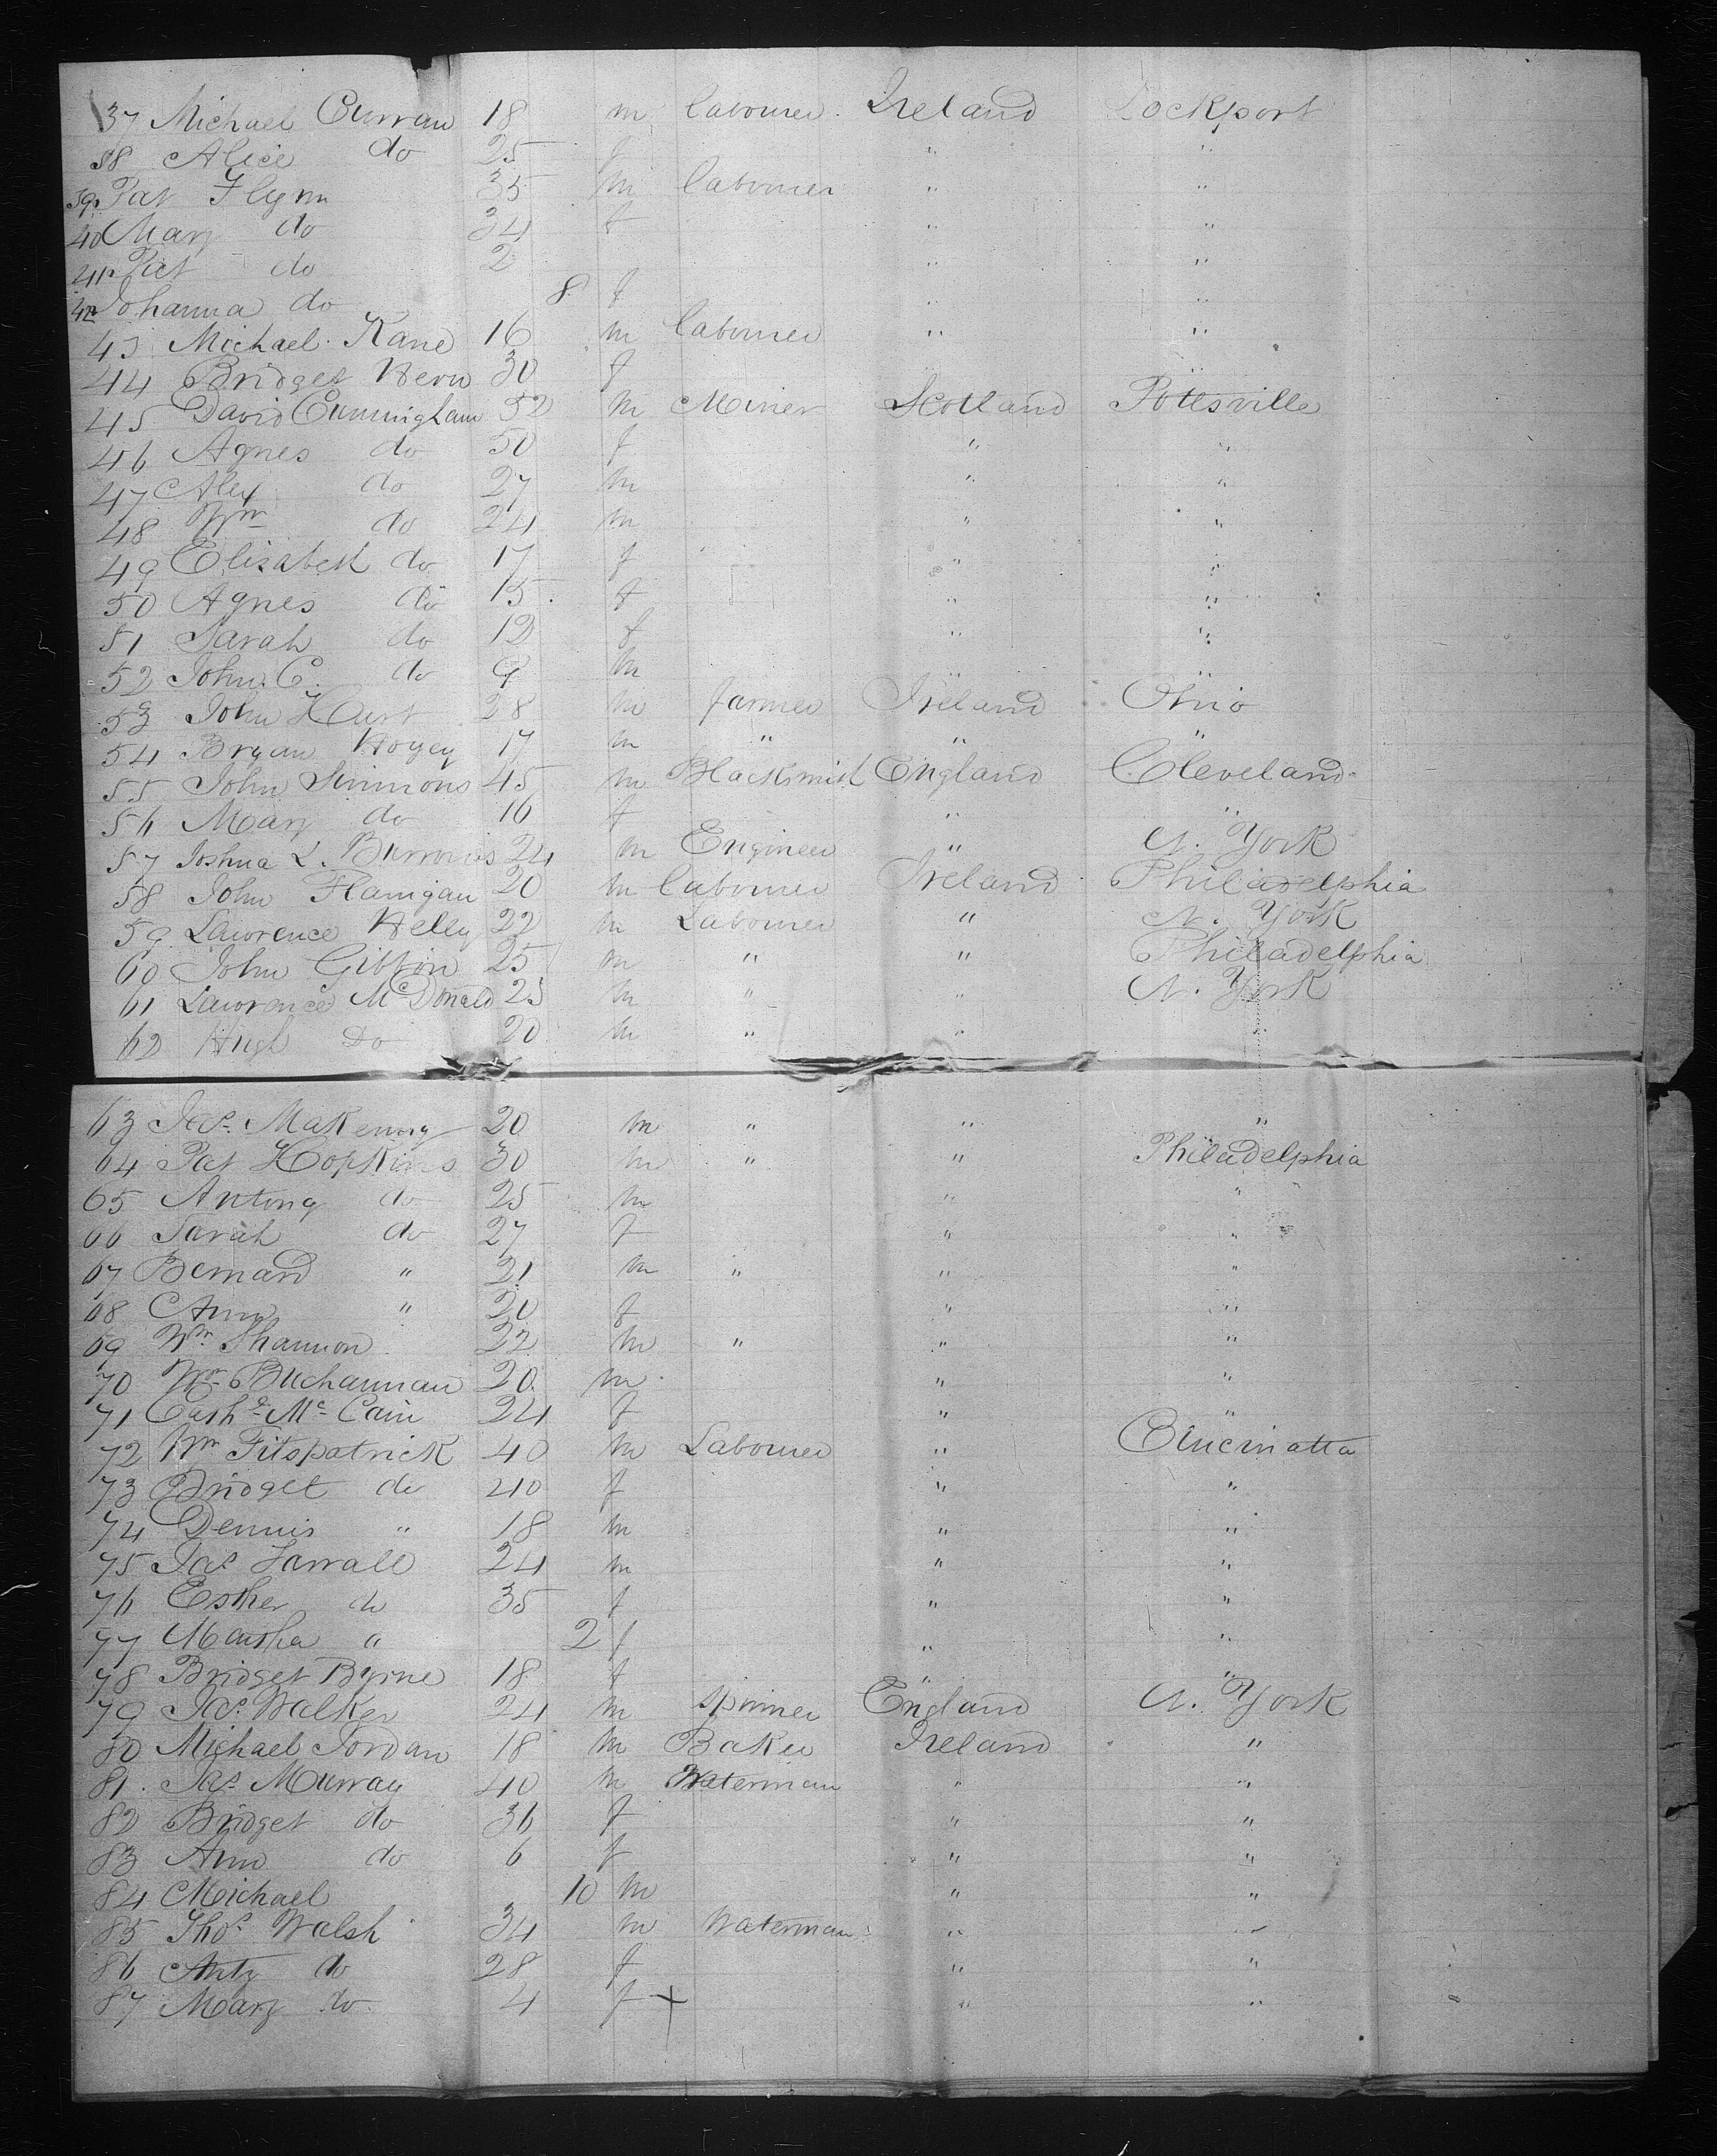 37 Michael Curran 18 m labourer Ireland Lockport
38 Alice do 25 f " "
39 Pat Flynn 35 m labourer " "
40 Mary do 34 f " "
41 Pat do 2 " "
42 Johanna do 8 f " "
43 Michael Kane 16 m labourer " "
44 Bridget Hern 30 f " "
45 David Cunningham 52 m Miner Scotland Pottsville
46 Agnes do 50 f " "
47 Alex do 27 m " "
48 Wm do 24 m " "
49 Elisabeth do 17 f " "
50 Agnes do 15 f " "
51 Sarah do 12 f " "
52 John C. do 9 m " "
53 John Hurst 28 m farmer Ireland Ohio
54 Bryan 17 m " " "
55 John Simmons 45 m Blacksmith England Cleveland
56 Mary do 16 f " "
57 Joshua L. Burrows 24 m Engineer " N. York
58 John Flanigan 20 m labourer Ireland Philadelphia
59 Lawrence Helly 22 m Labourer " N. York
60 John Gibbon 25 m " " Philadelphia
61 Lawrence McDonald 25 m " " N. York
62 Hugh Do 20 m " " "
63 Jas. MaKenny 20 m " " "
64 Pat Hopkins 30 m " " Philadelphia
65 Antony do 25 m " "
66 Sarah do 27 f " "
67 Bernard " 21 m " " "
68 Ann " 20 f " "
69 Wm Shannon 22 m " " "
70 Wm Buchannan 20 m " "
71 Cathe Mc Cain 24 f " "
72 Wm Fitspatrick 40 m Labourer " Cincinatta
73 Bridget do 40 f " "
74 Dennis " 18 m " "
75 Jas Farrall 24 m " "
76 Esther do 35 f " "
77 Martha " 2 f " "
78 Bridget Byrne 18 f " "
79 Jas. Walker 24 m Spinner England N. York
80 Michael Jordan 18 m Baker Ireland "
81 Jas. Murray 40 m Waterman " "
82 Bridget do 36 f " "
83 Ann do 6 f " "
84 Michael 10 m " "
85 Thos. Walsh 34 m Waterman " "
86 do 28 f " "
87 Mary do 4 f + " "